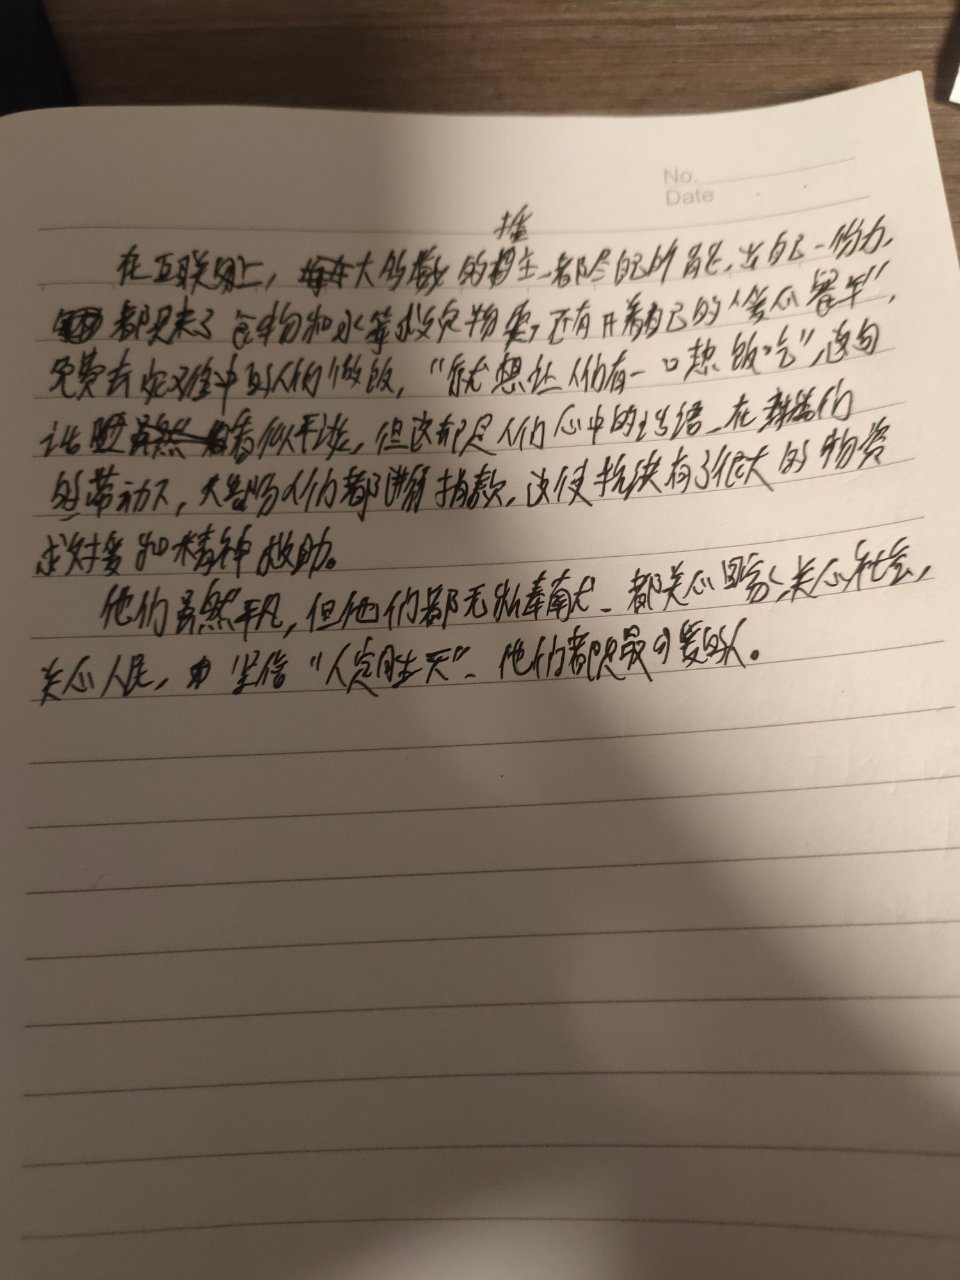 No.
Date
播
在互联网上，大多数的主都尽自己所能，出自己一份力，
都见来了食物和水等救灾物资，还有开着自己的"餐车"，
免费去灾难中的人们做饭，"就想让人们有一口热饭吃"，这句
话虽然看似平淡，但这却是人们心中的话语。在们
的带动下，大部份人们都进行捐款，这使抗洪有了很大的物资
救援和精神救助。
他们虽然平凡，但他们都无私奉献、都关心国家、关心社会，
关心人民，坚信"人定胜天"、他们都是最可爱的人。